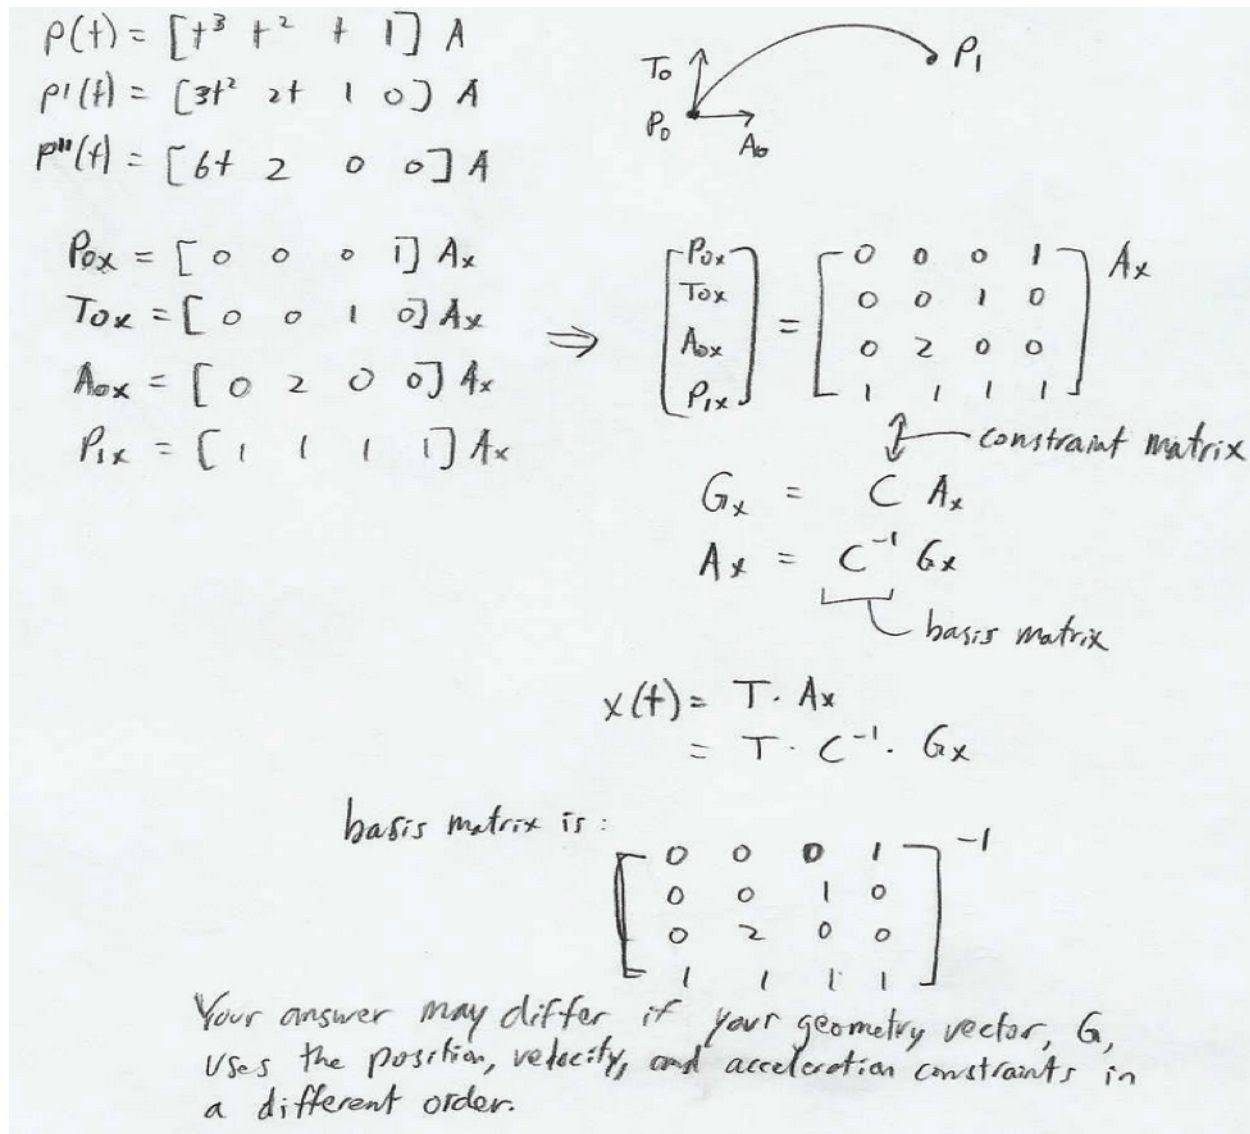 P(t) = [t³ t² t 1] A
P'(t) = [3t² 2t 1 0] A
P"(t) = [6t 2 0 0] A
T₀
P₀
A₀
P₁
P₀ₓ = [0 0 0 1] Aₓ
T₀ₓ = [0 0 1 0] Aₓ
A₀ₓ = [0 2 0 0] Aₓ
P₁ₓ = [1 1 1 1] Aₓ
⇒
[P₀ₓ T₀ₓ A₀ₓ P₁ₓ] =
[0 0 0 1
0 0 1 0
0 2 0 0
1 1 1 1] Aₓ
constraint matrix
Gₓ = C Aₓ
Aₓ = C⁻¹ Gₓ
basis matrix
x(t) = T · Aₓ
= T · C⁻¹ · Gₓ
basis matrix is:
[0 0 0 1
0 0 1 0
0 2 0 0
1 1 1 1]⁻¹
Your answer may differ if your geometry vector, G,
uses the position, velocity, and acceleration constraints in
a different order.